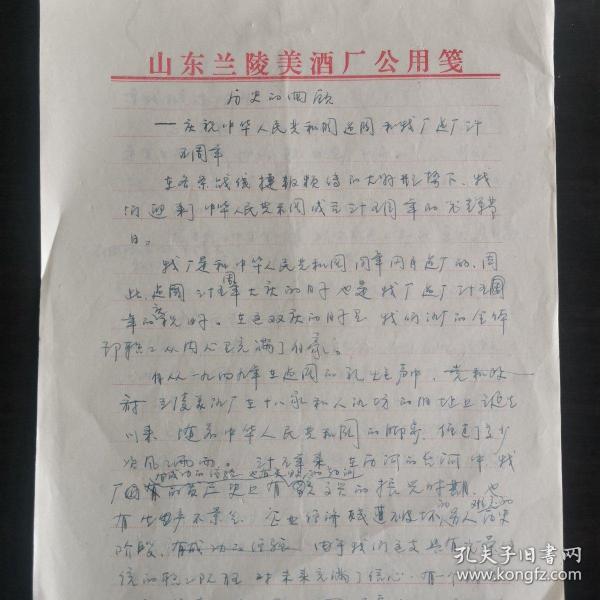 山东兰陵美酒厂公用笺
历史的回顾
——庆祝中华人民共和国建国和我厂建厂卅
五周年
在各条战线捷报频传的大好形势下，我
们迎来了中华人民共和国成立卅五周年的光辉节
日。
我厂是和中华人民共和国同年同月建厂的，因
此，建国卅五周年大庆的日子也是我厂建厂卅五周
年的庆祝日子。在这双庆的日子里我们酒厂的全体
职工从内心里充满了自豪。
自从一九四九年在建国的礼炮声中，
兰陵美酒厂在十八家私人酒坊的旧址上诞生
以来，随着中华人民共和国的脚步，经过了多少
次风雨。卅五年来，在历史的长河中，我
厂的历史上有的振兴时期，也
有生产不景气，企业经济遭破坏的
阶段，有成功的经验
统的职工队伍对未来充满了信心，有一
孔夫子旧书网
www.kongfz.com